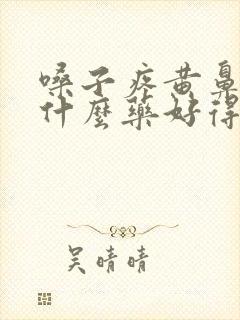 嗓子疼黄鼻
什麼藥好得
吴晴晴